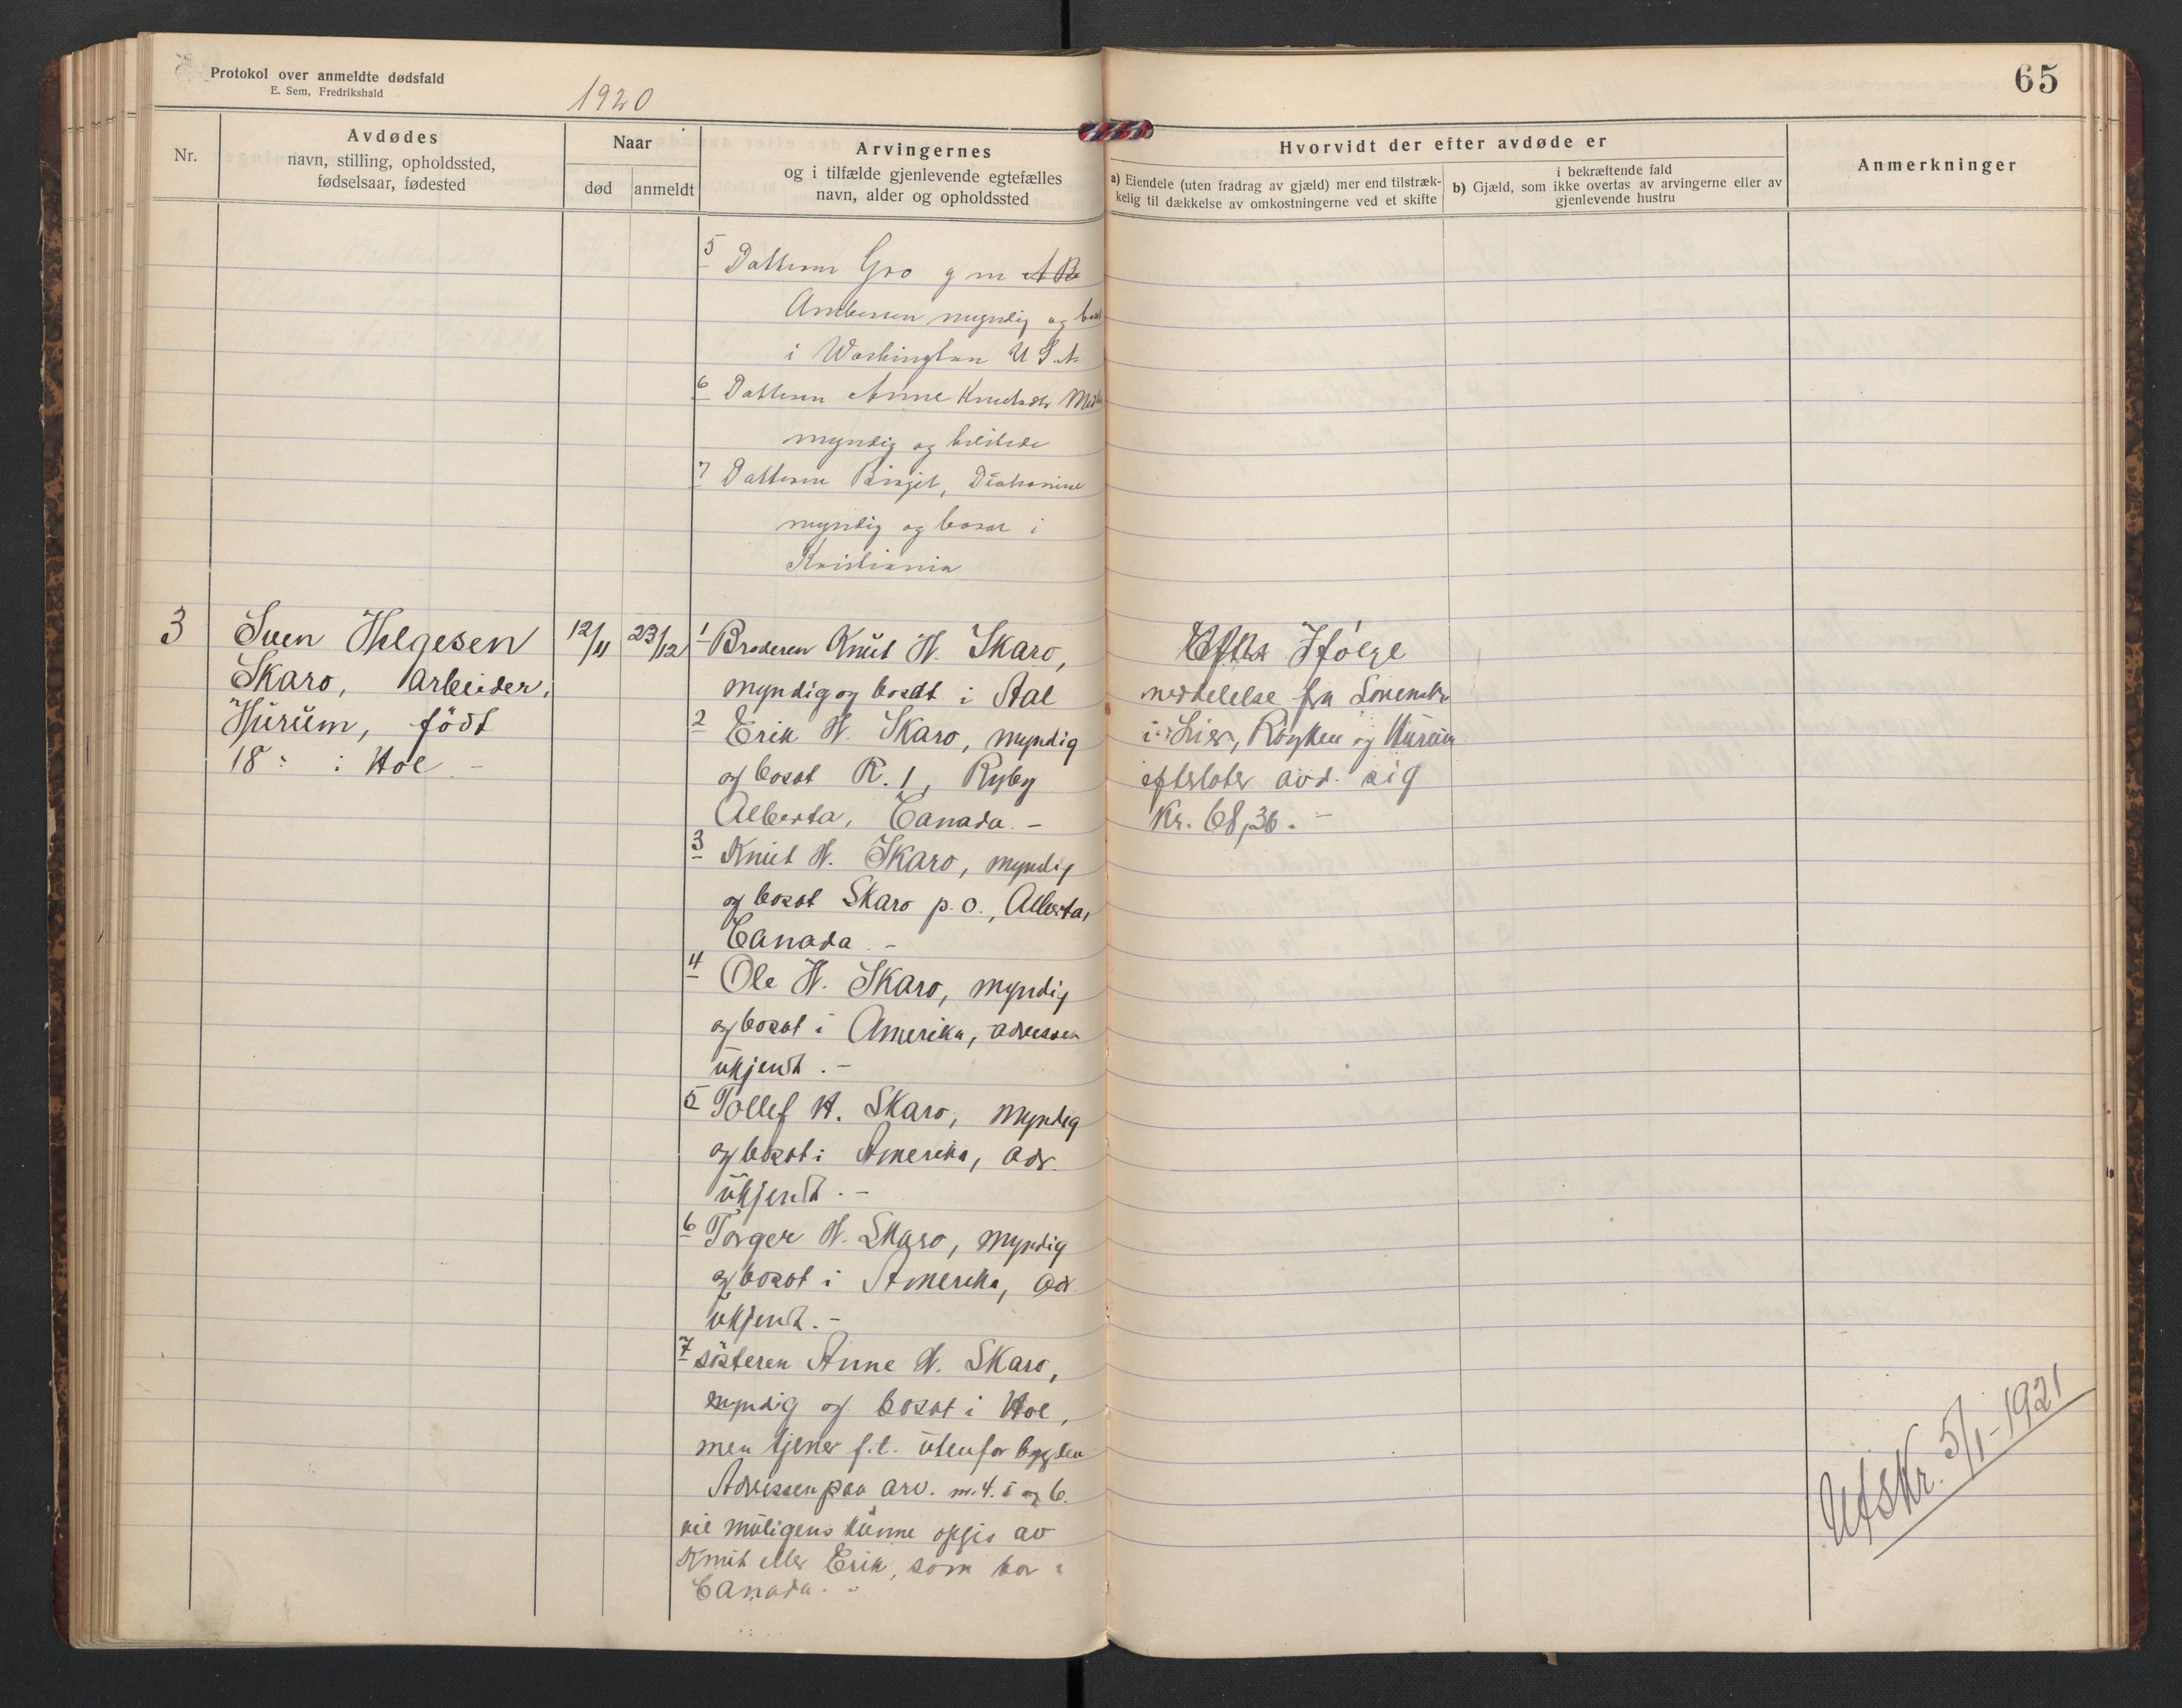 Protokol over anmeldte dødsfald
E. Sem, Fredrikshald
1920
65
Nr.
Avdødes
navn, stilling, opholdssted,
fødselsaar, fødested
Naar
død
anmeldt
Arvingernes
og i tilfælde gjenlevende egtefælles
navn, alder og opholdssted
Hvorvidt der efter avdøde er
a) Eiendele (uten fradrag av gjæld) mer end tilstræk-
kelig til dækkelse av omkostningerne ved et skifte
i bekræftende fald
b) Gjæld, som ikke overtas av arvingerne eller av
gjenlevende hustru
Anmerkninger
5 Datteren Gro g m
myndig og
i Washington U S. A
6 Datteren Anne Knudsdtr
myndig og
7 Datteren Birgit, Diakonisse
myndig og bosat i
Kristiania
3
Sven Helgesen
Skaro, arbeider,
Hurum, född
18 : i Hol -
12/11
23/12
1 Broderen Knut H. Skaro,
myndig og bosat i Aal
2 Erik H. Skaro, myndig
og bosat R. 1, Ryby
Alberta, Canada. -
3 Knut H. Skaro, myndig
og bosat Skaro p. o., Alberta,
Canada. -
4 Ole H. Skaro, myndig
og bosat i Amerika, adressen
ukjendt. -
5 Tollef H. Skaro, myndig
og bosat i Amerika, adr.
ukjendt. -
6 Torger H. Skaro, myndig
og bosat i Amerika, adr
ukjendt. -
7 søsteren Anne H. Skaro,
myndig og bosat i Hol,
men tjener f.t. utenfor bygden
Adressen paa arv. nr. 4. 5 og 6.
vil muligens kunne opgis av
Knut eller Erik, som bor i
Canada. -
Ifølge
meddelelse fra Lensm.
i Lier, Røyken og Hurum
efterlater avd. sig
Kr. 68,36. -
Utskr. 5/1-1921